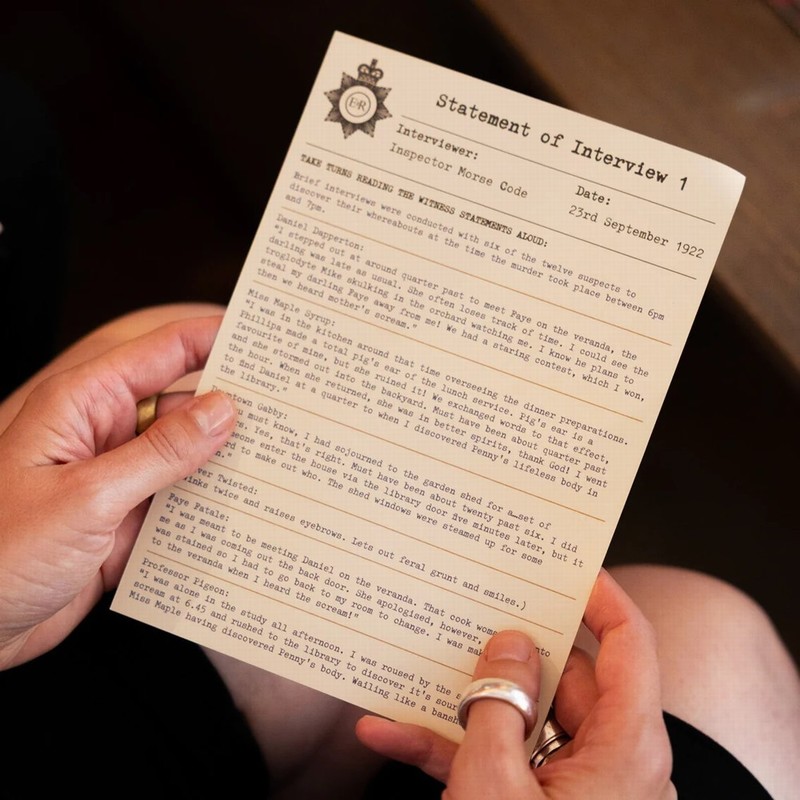 EiiR
Statement of Interview 1
Interviewer:
Inspector Morse Code
Date:
23rd September 1922
TAKE TURNS READING THE WITNESS STATEMENTS ALOUD:
Brief interviews were conducted with six of the twelve suspects to
discover their whereabouts at the time the murder took place between 6pm
and 7pm.
Daniel Dapperton:
"I stepped out at around quarter past to meet Faye on the veranda, the
darling was late as usual. She often loses track of time. I could see the
troglodyte Mike skulking in the orchard watching me. I know he plans to
steal my darling Faye away from me! We had a staring contest, which I won,
then we heard mother's scream."
Miss Maple Syrup:
"I was in the kitchen around that time overseeing the dinner preparations.
Phillips made a total pig's ear of the lunch service. Pig's ear is a
favourite of mine, but she ruined it! We exchanged words to that effect,
and she stormed out into the backyard. Must have been about quarter past
the hour. When she returned, she was in better spirits, thank God! I went
to find Daniel at a quarter to when I discovered Penny's lifeless body in
the library."
town Gabby:
u must know, I had sojourned to the garden shed for a set of
rs. Yes, that's right. Must have been about twenty past six. I did
eone enter the house via the library door five minutes later, but it
d to make out who. The shed windows were steamed up for some
n."
ver Twisted:
inks twice and raises eyebrows. Lets out feral grunt and smiles.)
Faye Fatale:
"I was meant to be meeting Daniel on the veranda. That cook wom to
me as I was coming out the back door. She apologised, however,
was stained so I had to go back to my room to change. I was mak
to the veranda when I heard the scream!"
Professor Pigeon:
"I was alone in the study all afternoon. I was roused by the s
scream at 6.45 and rushed to the library to discover it's sour
Miss Maple having discovered Penny's body. Wailing like a bansh